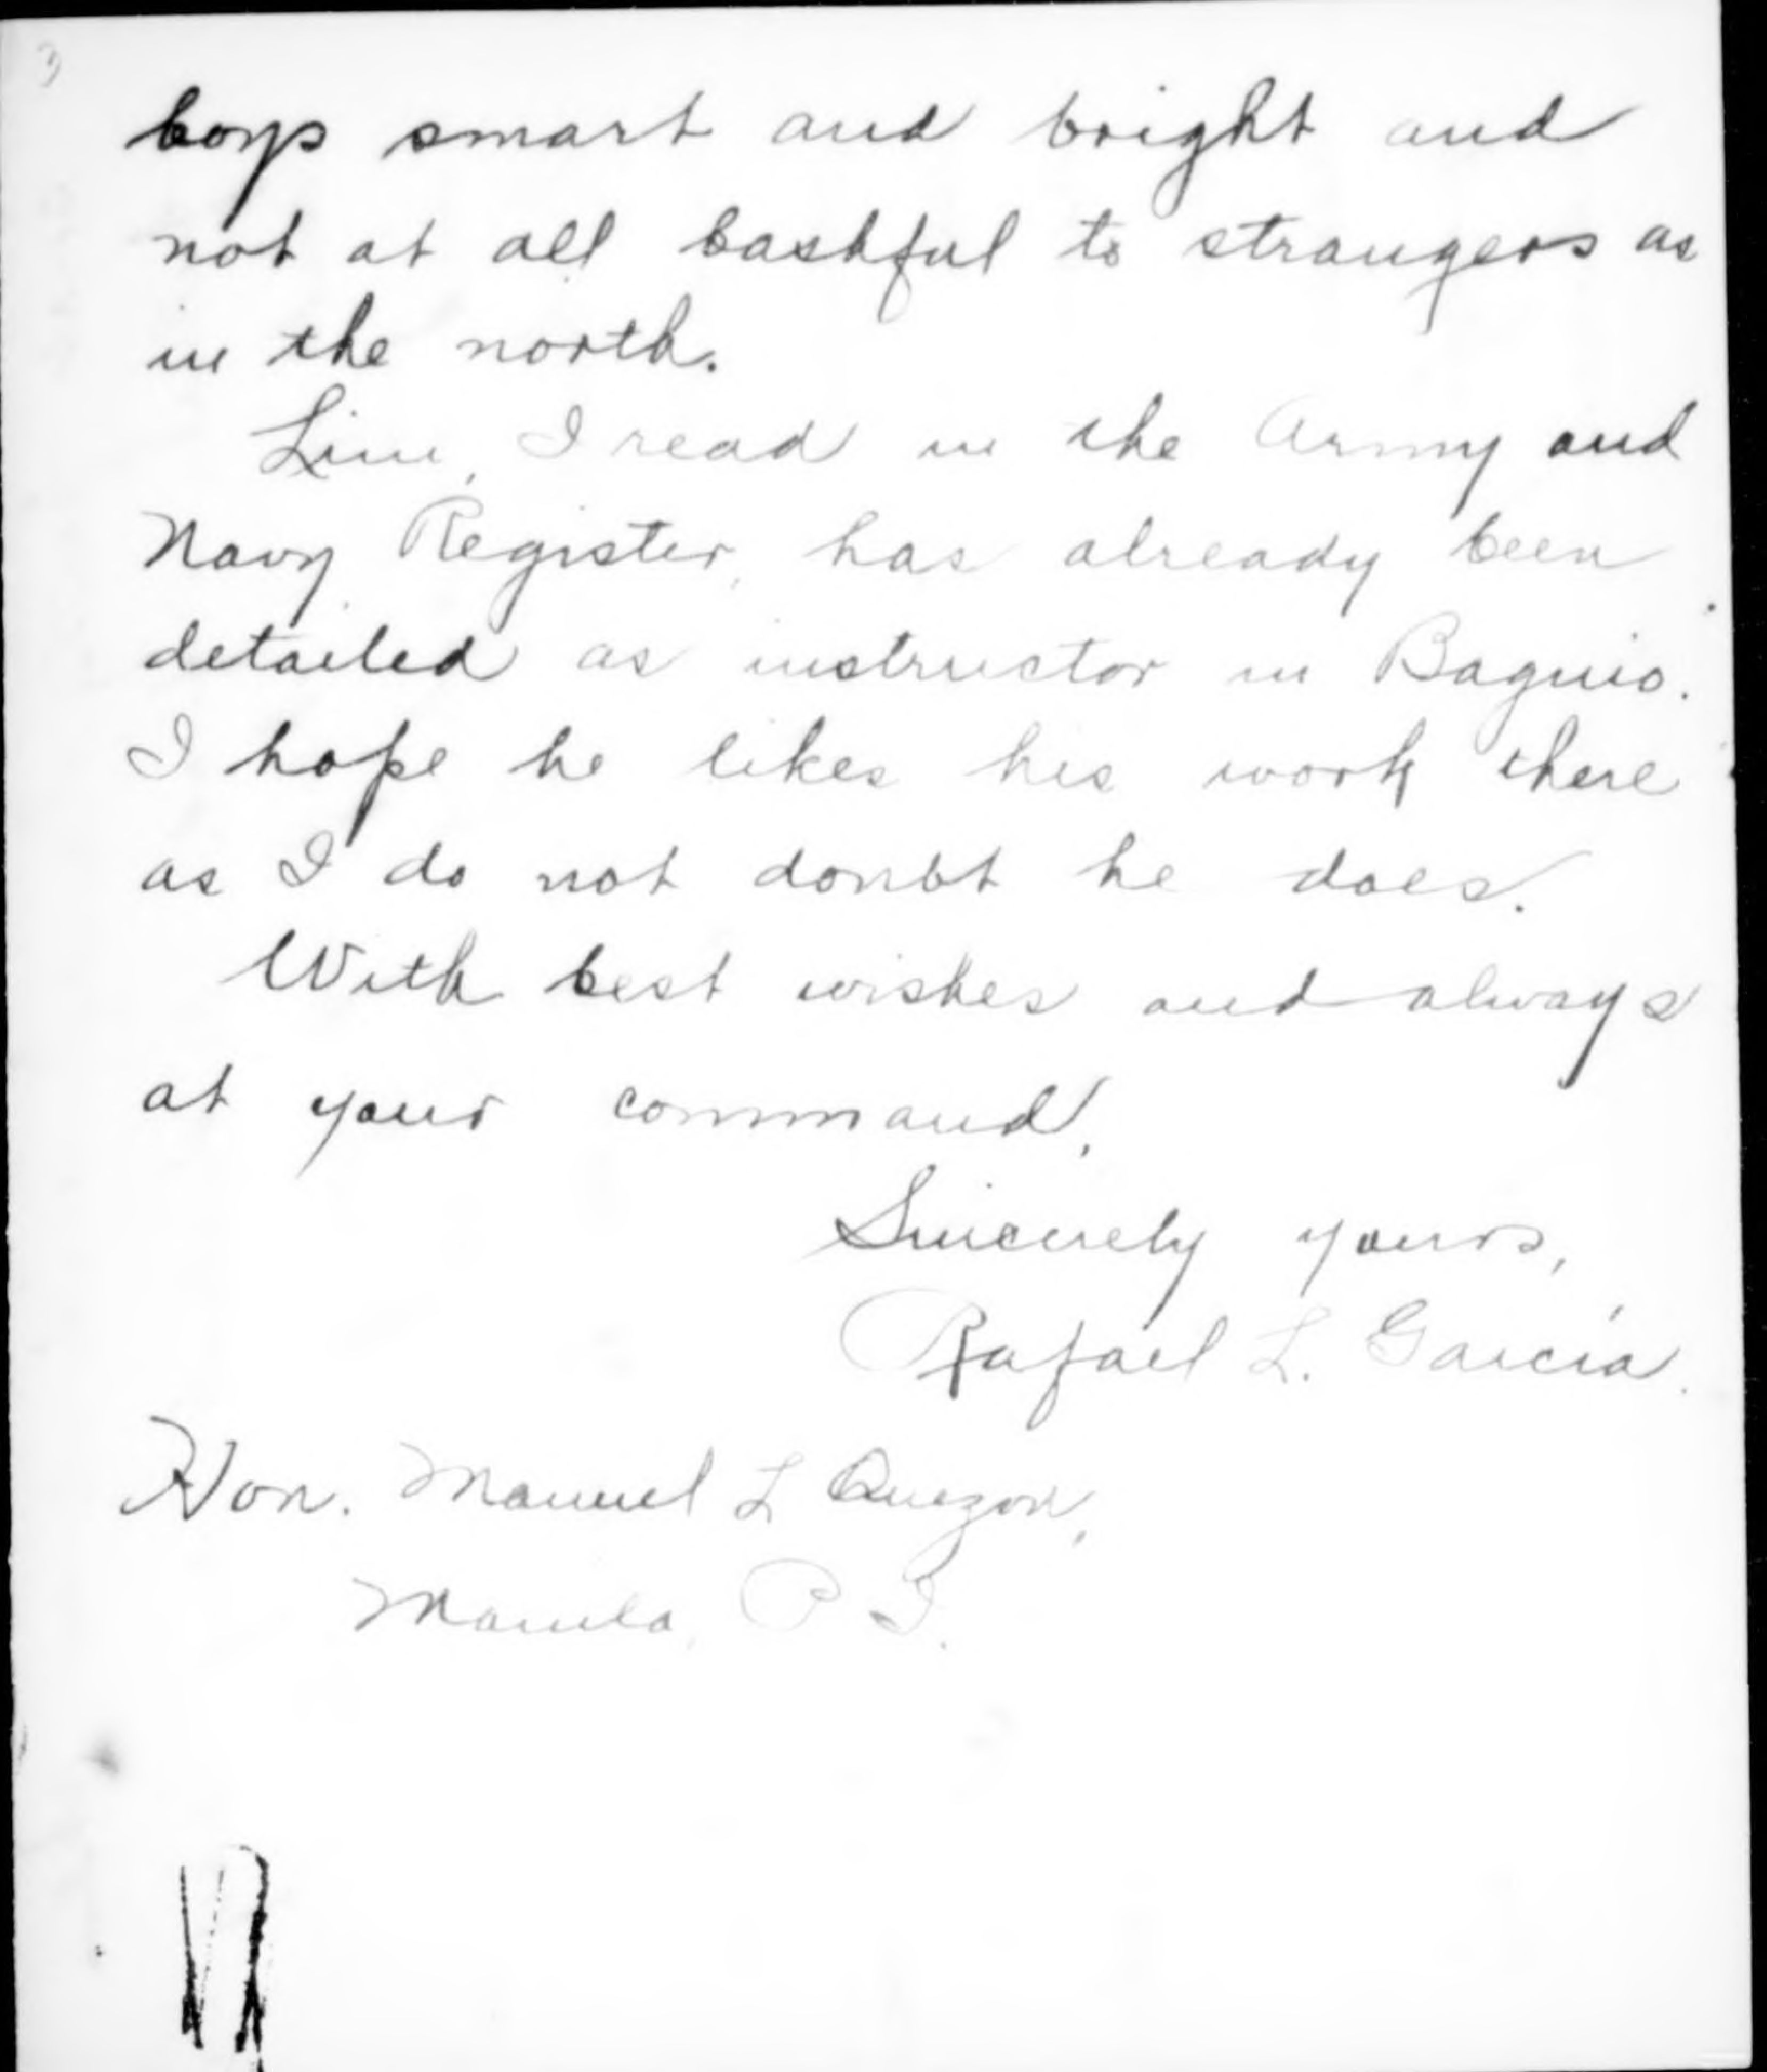 3
boys smart and bright and
not at all bashful to strangers as
in the north.
Lim, I read in the Army and
Navy Register, has already been
detailed as instructor in Baguio.
I hope he likes his work there
as I do not doubt he does.
With best wishes and always
at your command,
Sincerely yours,
Rafael L. García.
Hon. Manuel L Quezon,
Manila, P I.